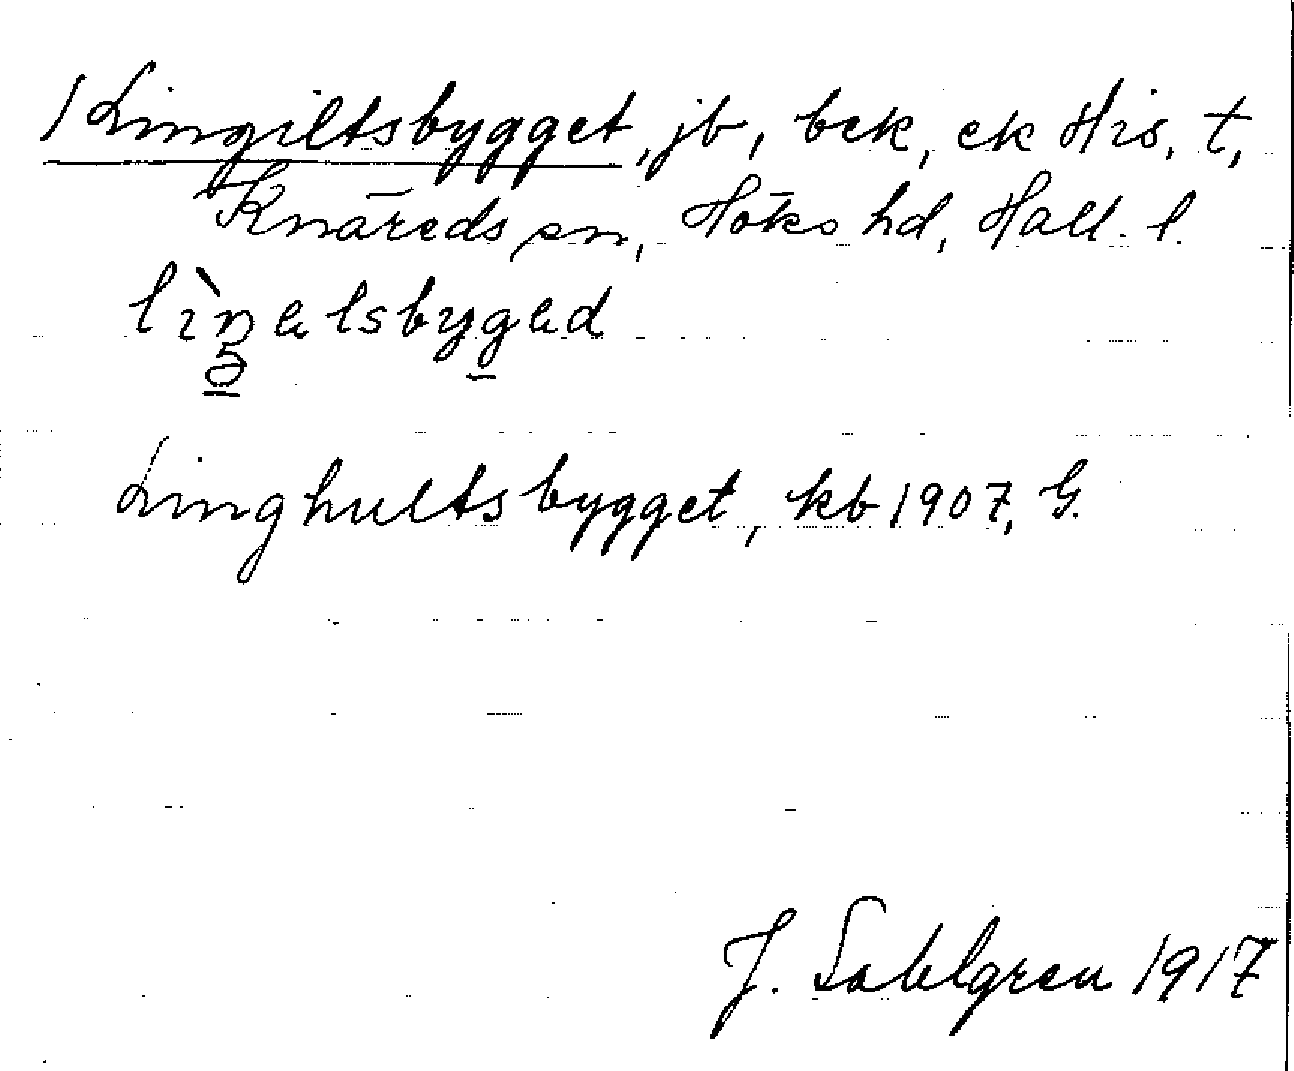 / Lingiltsbygget, jb, bek, ek His. t,
Knäreds sn, Höks hd, Hall. l.
lìŋəlsbygəd
Linghultsbygget, kb 1907, G.
J. Sahlgren 1917